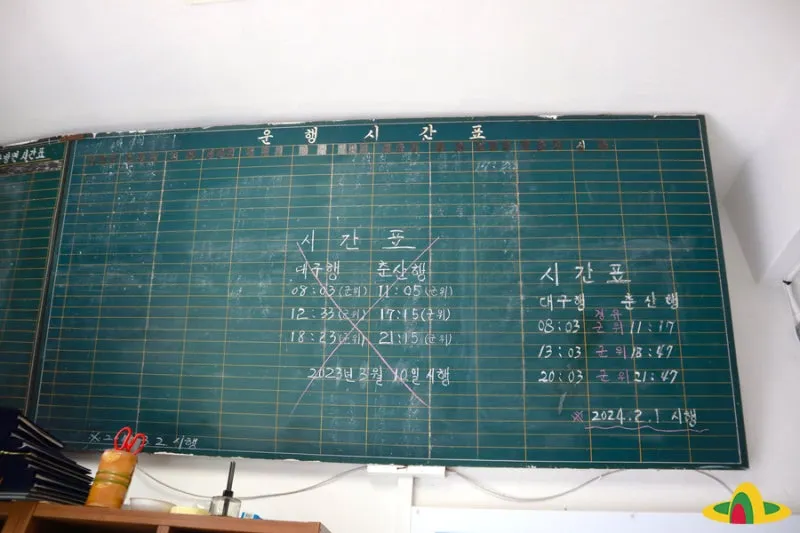 운행시간표
시간표
시간표
대구행 춘산행
08:03(군위) 11:05(군위)
12:33(군위) 17:15(군위)
18:23(군위) 21:15(군위)
2023년 3월 10일 시행
시간표
대구행 춘산행
경유
08:03 군위 11:17
13:03 군위 18:47
20:03 군위 21:47
※ 2024.2.1 시행
2. 시행